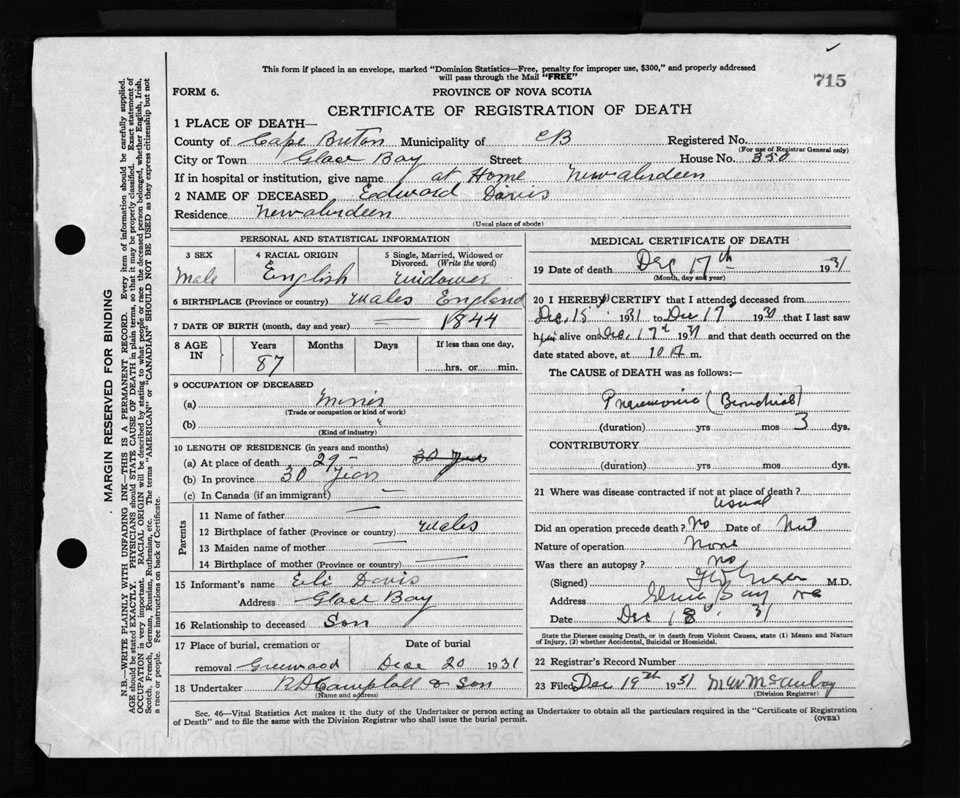 This form if placed in an envelope, marked "Dominion Statistics—Free, penalty for improper use, $300," and properly addressed
will pass through the Mail "FREE"
715
FORM 6.
PROVINCE OF NOVA SCOTIA
CERTIFICATE OF REGISTRATION OF DEATH
1 PLACE OF DEATH—
County of Cape Breton Municipality of CB Registered No.
(For use of Registrar General only)
City or Town Glace Bay Street House No. 350
If in hospital or institution, give name at Home Newaberdeen
2 NAME OF DECEASED Edward Davis
Residence Newaberdeen
(Usual place of abode)
PERSONAL AND STATISTICAL INFORMATION
3 SEX
Male
4 RACIAL ORIGIN
English
5 Single, Married, Widowed or
Divorced. (Write the word)
widower
6 BIRTHPLACE (Province or country) Wales England
7 DATE OF BIRTH (month, day and year) — 1844
8 AGE
IN
Years
87
Months
Days
If less than one day,
hrs. or min.
9 OCCUPATION OF DECEASED
(a) Miner
(Trade or occupation or kind of work)
(b)
(Kind of industry)
10 LENGTH OF RESIDENCE (in years and months)
(a) At place of death 29 — 30 years
(b) In province 30 years
(c) In Canada (if an immigrant) —
Parents
11 Name of father —
12 Birthplace of father (Province or country) Wales
13 Maiden name of mother —
14 Birthplace of mother (Province or country) —
15 Informant's name Eli Davis
Address Glace Bay
16 Relationship to deceased Son
17 Place of burial, cremation or
removal Greenwood
Date of burial
Dece 20 1931
18 Undertaker R D Campbell & Son
(Name and address)
MEDICAL CERTIFICATE OF DEATH
19 Date of death Dec 17th 1931
(Month, day and year)
20 I HEREBY CERTIFY that I attended deceased from
Dec. 15th 1931 to Dec 17th 1931 that I last saw
him alive on Dec. 17th 1931 and that death occurred on the
date stated above, at 10 A m.
The CAUSE of DEATH was as follows:—
Pneumonia (Bronchial)
(duration) yrs mos 3 dys.
CONTRIBUTORY
(duration) yrs mos dys.
21 Where was disease contracted if not at place of death?
usual
Did an operation precede death? No Date of Not
Nature of operation None
Was there an autopsy? No
(Signed) M.D.
Address Glace Bay NS
Date Dec 18th, 31
State the Disease causing Death, or in death from Violent Causes, state (1) Means and Nature
of Injury, (2) whether Accidental, Suicidal or Homicidal.
22 Registrar's Record Number
23 Filed Dec 19th 1931 McAulay
(Division Registrar)
Sec. 46—Vital Statistics Act makes it the duty of the Undertaker or person acting as Undertaker to obtain all the particulars required in the "Certificate of Registration
of Death" and to file the same with the Division Registrar who shall issue the burial permit.
(OVER)
MARGIN RESERVED FOR BINDING
N.B.—WRITE PLAINLY WITH UNFADING INK—THIS IS A PERMANENT RECORD. Every item of information should be carefully supplied.
AGE should be stated EXACTLY. PHYSICIANS should STATE CAUSE OF DEATH in plain terms, so that it may be properly classified. Exact statement of
OCCUPATION is very important. RACIAL ORIGIN will be described by stating to what people or race the deceased person belonged, whether English, Irish,
Scotch, French, German, Russian, Ruthenian, etc. The terms "AMERICAN" or "CANADIAN" SHOULD NOT BE USED as they express citizenship but not
a race or people. See instructions on back of Certificate.